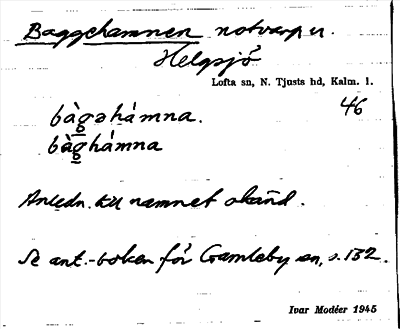 Baggehamnen notvarp u.
Helgsjö
Lofta sn, N. Tjusts hd, Kalm. l.
46
bàgəhámna.
bàghámna
Anledn. till namnet okänd.
Se ant.-boken för Gamleby sn, s. 132.
Ivar Modéer 1945